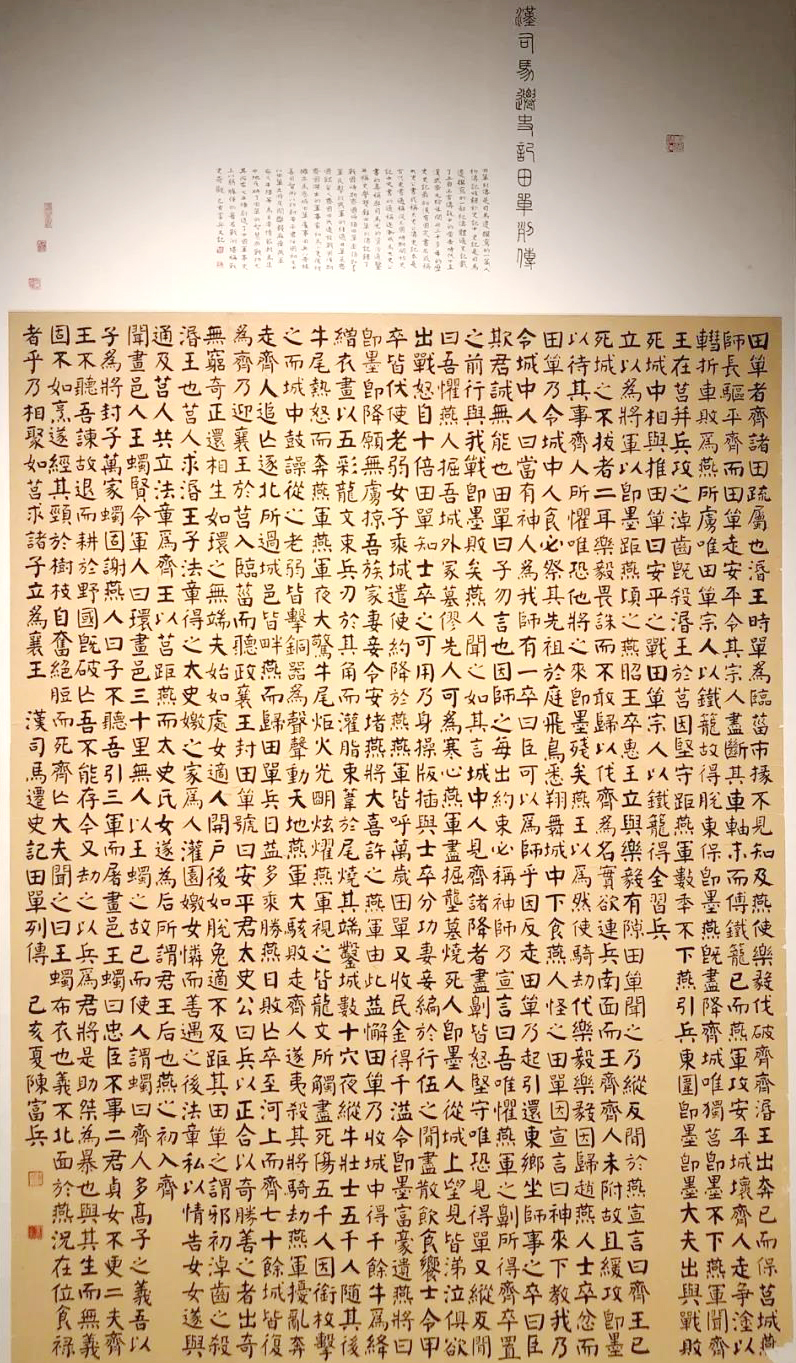 漢司馬遷史記田單列傳
田單者齊諸田疏屬也湣王時單為臨菑市掾不見知及燕使樂毅伐破齊齊湣王出奔已而保莒城燕
師長驅平齊而田單走安平令其宗人盡斷其車軸末而傅鐵籠已而燕軍攻安平城壞齊人走爭塗以
轊折車敗爲燕所虜唯田單宗人以鐵籠故得脫東保即墨燕既盡降齊城唯獨莒即墨不下燕軍聞齊
王在莒并兵攻之淖齒既殺湣王於莒因堅守距燕軍數年不下燕引兵東圍即墨即墨大夫出與戰敗
死城中相與推田單曰安平之戰田單宗人以鐵籠得全習兵
立以為將軍以即墨距燕頃之燕昭王卒惠王立與樂毅有隙田單聞之乃縱反間於燕宣言曰齊王已
死城之不拔者二耳樂毅畏誅而不敢歸以伐齊為名實欲連兵南面而王齊齊人未附故且緩攻即墨
以待其事齊人所懼唯恐他將之來即墨殘矣燕王以爲然使騎劫代樂毅樂毅因歸趙燕人士卒忿而
田單乃令城中人食必祭其先祖於庭飛鳥悉翔舞城中下食燕人怪之田單因宣言曰神來下教我乃
令城中人曰當有神人為我師有一卒曰臣可以爲師乎因反走田單乃起引還東鄉坐師事之卒曰臣
欺君誠無能也田單曰子勿言也因師之每出約束必稱神師乃宣言曰吾唯懼燕軍之劓所得齊卒置
之前行與我戰即墨敗矣燕人聞之如其言城中人見齊諸降者盡劓皆怒堅守唯恐見得單又縱反間
曰吾懼燕人掘吾城外冢墓僇先人可為寒心燕軍盡掘壟墓燒死人即墨人從城上望見皆涕泣俱欲
出戰怒自十倍田單知士卒之可用乃身操版插與士卒分功妻妾編於行伍之間盡散飲食饗士令甲
卒皆伏使老弱女子乘城遣使約降於燕燕軍皆呼萬歲田單又收民金得千溢令即墨富豪遺燕將曰
即墨即降願無虜掠吾族家妻妾令安堵燕將大喜許之燕軍由此益懈田單乃收城中得千餘牛爲絳
繒衣畫以五彩龍文束兵刃於其角而灌脂束葦於尾燒其端鑿城數十穴夜縱牛壯士五千人隨其後
牛尾熱怒而奔燕軍燕軍夜大驚牛尾炬火光明炫燿燕軍視之皆龍文所觸盡死傷五千人因銜枚擊
之而城中鼓譟從之老弱皆擊銅器為聲聲動天地燕軍大駭敗走齊人遂夷殺其將騎劫燕軍擾亂奔
走齊人追亡逐北所過城邑皆畔燕而歸田單兵日益多乘勝燕日敗亡卒至河上而齊七十餘城皆復
為齊乃迎襄王於莒入臨菑而聽政襄王封田單號曰安平君太史公曰兵以正合以奇勝善之者出奇
無窮奇正還相生如環之無端夫始如處女適人開戶後如脫兔適不及距其田單之謂邪初淖齒之殺
湣王也莒人求湣王子法章得之太史嬓之家爲人灌園嬓女憐而善遇之後法章私以情告女女遂與
通及莒人共立法章爲齊王以莒距燕而太史氏女遂為后所謂君王后也燕之初入齊
聞畫邑人王蠋賢令軍人曰環畫邑三十里無人以王蠋之故已而使人謂蠋曰齊人多高子之義吾以
子爲將封子萬家蠋固謝燕人曰子不聽吾引三軍而屠畫邑王蠋曰忠臣不事二君貞女不更二夫齊
王不聽吾諫故退而耕於野國既破亡吾不能存今又劫之以兵爲君將是助桀為暴也與其生而無義
固不如烹遂經其頸於樹枝自奮絕脰而死齊亡大夫聞之曰王蠋布衣也義不北面於燕況在位食祿
者乎乃相聚如莒求諸子立為襄王 漢司馬遷史記田單列傳 己亥夏陳富兵